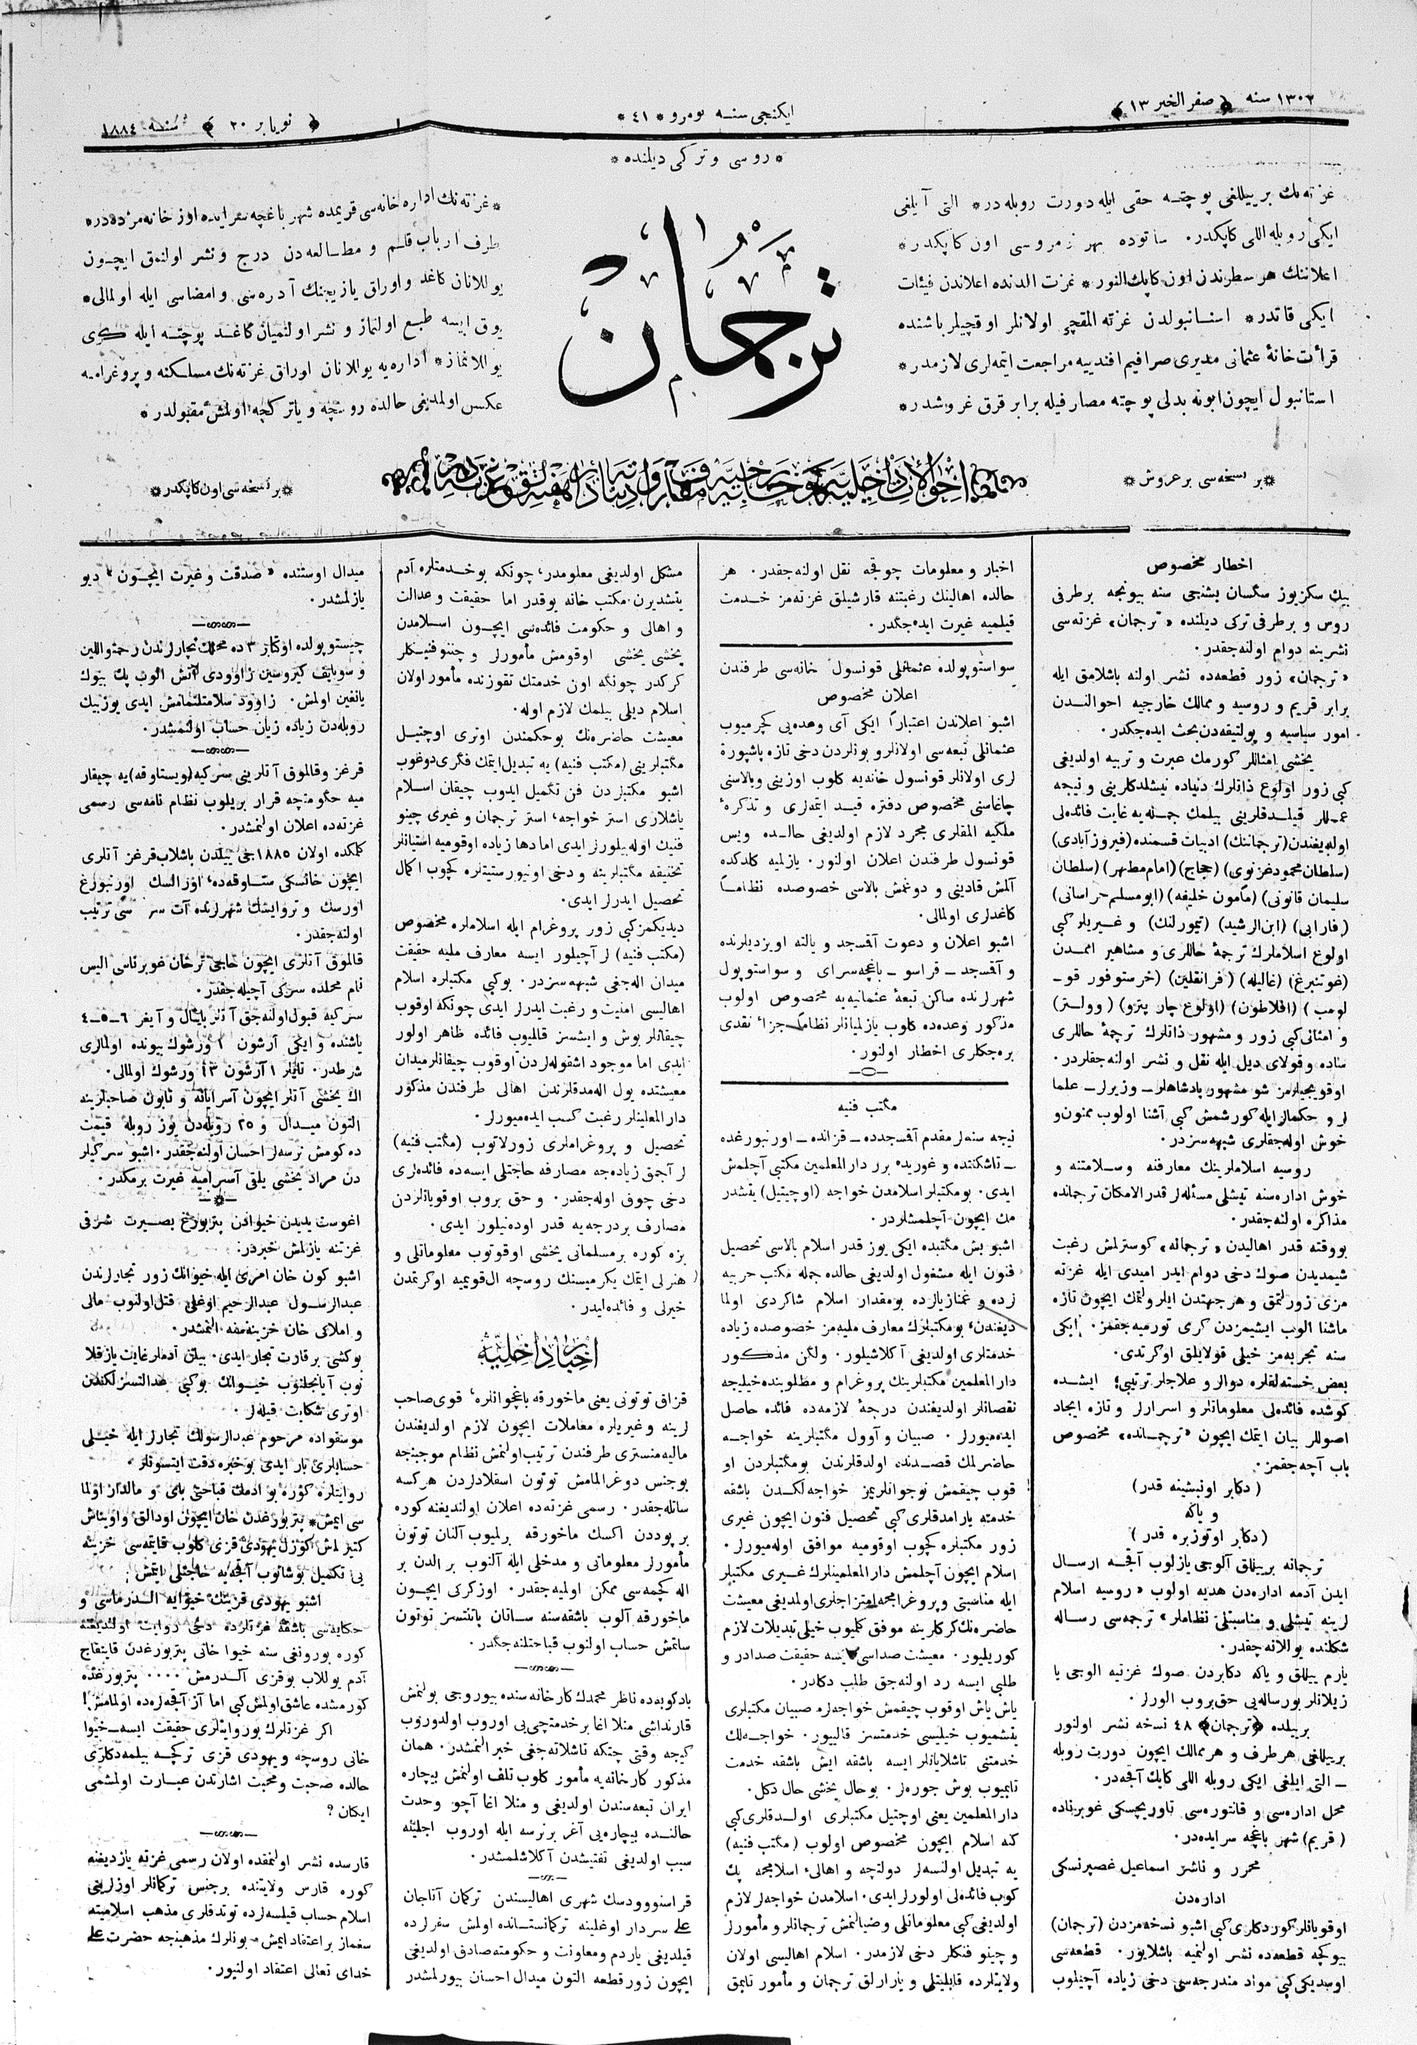 ١٣٠٢ سنه ﴿ صفر الخير ١٣ ﴾
ايكنجى سنه نومرو * ٤١ *
﴿ نويابر ٢٠ ﴾ سنه ١٨٨٤
* روسى و تركى ديلنده *
غزته‌نك بر ييللغى پوچته حقى ايله دورت روبله‌در * التى آيلغى
ايكى روبله اللى كاپكدر. ساتوده بهر نمروسى اون كاپكدر *
اعلاننك هر سطرندن اون كاپك النور *
ايكى قاتدر * استانبولدن غزته المقچى اولانلر اوقچيلر باشنده
قرأت خانهٔ عثمانى مديرى صرافيم افندييه مراجعت ايتمه‌لرى لازمدر *
استانبول ايچون ابونه بدلى پوچته مصارفيله برابر قرق غروشدر *
ترجمان
* غزته‌نك اداره خانه‌سى قريمده شهر باغچه سرايده اوز خانه‌مزده‌در *
طرف ارباب قلم و مطالعه‌دن درج و نشر اولنمق ايچون
يوللانان كاغد و اوراق يازيجينك آدره‌سى و امضاسى ايله اولمالى *
يوق ايسه طبع اولنماز و نشر اولنميان كاغد پوچته ايله كرى
يوللانماز * اداره‌يه يوللانان اوراق غزته‌نك مسلكنه و پروغرامنه
عكس اولمديغى حالده روسچه و ياتركچه اولمش مقبولدر *
* بر نسخه‌سى بر غروش *
* بر نسخه‌سى اون كاپكدر *
اخطار مخصوص
بيك سكزيوز سكسان بشنجى سنه بيونجه بر طرفى
روس و بر طرفى تركى ديلنده «ترجمان» غزته‌سى
نشرينه دوام اولنه‌جقدر.
«ترجمان» زور قطعه‌ده نشر اولنه باشلامق ايله
برابر قريم و روسيه و ممالك خارجيه احوالندن
امور سياسيه و پولتيقه‌دن بحث ايده‌جكدر.
يخشى امثاللر كورمك عبرت و تربيه اولديغى
كبى زور اولوغ ذاتلرك دنياده
عمللر قيلدقلرينى بيلمك جمله‌يه غايت فائده‌لى
اوله‌يغندن (ترجماننك) ادبيات قسمنده (فيروزآبادى)
(سلطان محمود غزنوى) (حجاج) (امام مطهر) (سلطان
سليمان قانونى) (مأمون خليفه) (ابومسلم خراسانى)
(فارابى) (ابن الرشيد) (تيمورلنك) و غيريلر كبى
اولوغ اسلاملرك ترجمهٔ حاللرى و مشاهير امـدن
(غوتنبرغ) (غاليله) (فرانقلين) (خرستوفور قو-
لومب) (افلاطون) (اولوغ چار پترو) (وولتر)
و امثالى كبى زور و مشهور ذاتلرك ترجمهٔ حاللرى
ساده و قولاى ديل ايله نقل و نشر اولنه‌جقلردر.
اوقويجيلرمز شو مشهور پادشاهلر ـ وزيرلر ـ علما
لر و حكمالر ايله كورشمش كبى آشنا اولوب ممنون و
خوش اوله‌جقلرى شبهه‌سزدر.
روسيه اسلاملرينك معارفنه و سلامتنه و
خوش اداره‌سنه تيشلى مسئله‌لر قدر الامكان ترجمانده
مذاكره اولنه‌جقدر.
بووقته قدر اهاليدن «ترجمانه» كوسترلمش رغبت
شيمديدن صوك دخى دوام ايدر اميدى ايله غزته
مزى زورلتمق و هر جهتدن ايلرولتمك ايچون تازه
ماشنا الوب ايشيمزدن كرى تورميه‌جقمز. ايكى
سنه تجربه‌مز خيلى قولايلق اوكرتدى.
بعض خسته‌لقلره دوالر و علاجلر ترتيبى؛ ايشده
كوشده فائده‌لى معلوماتلر و اسرارلر و تازه ايجاد
اصوللر بيان ايتمك ايچون «ترجمانده» مخصوص
باب آچه‌جقمز.
(دكابر اونبشينه قدر)
و ياكه
(دكابر اوتوزبره قدر)
ترجمانه بر ييللق آلوجى يازلوب آقچه ارسال
ايدن آدمه اداره‌دن هديه اولوب «روسيه اسلام
لرينه تيشلى و مناسبتلى نظاملر» ترجمه‌سى رساله
شكلنده يوللانه‌جقدر.
يارم ييللق و ياكه دكابردن صوك غزتيه الوجى يا
زيلانلر بو رساله‌يى حق بروب الورلر.
بر ييلده «ترجمان» ٤٨ نسخه نشر اولنور
بر ييللغى هر طرف و هر ممالك ايچون دورت روبله
ـ التى ايلغى ايكى روبله اللى كاپك آقچه‌در.
محل اداره‌سى و قانتوره‌سى تاوريچسكى غوبرناده
(قريم) شهر باغچه سرايده‌در.
محرر و ناشر اسماعيل غصپرنسكى
اداره‌دن
اوقويانلر كوردكلرى كبى اشبو نسخه‌مزدن (ترجمان)
بيوكچه قطعه‌ده نشر اولنميه باشلايور. قطعه‌سى
اوسديكى كبى مواد مندرجه‌سى دخى زياده آچيلوب
اخبار و معلومات چوقجه نقل اولنه‌جقدر. هر
حالده اهالينك رغبتنه قارشيلق غزته‌مز خدمت
قيلميه غيرت ايده‌جكدر.
سواستوپولده عثمانلى قونسول خانه‌سى طرفندن
اعلان مخصوص
اشبو اعلاندن اعتباراً ايكى آى وعده‌يى كچرميوب
عثمانلى تبعه‌سى اولانلر و بونلردن دخى تازه پاشپورة
لرى اولانلر قونسول خانه‌يه كلوب اوزينى و بالاسنى
چاغاسنى مخصوص دفتره قيد ايتمه‌لرى و تذكرهٔ
ملكيه المقلرى مجرد لازم اولديغى حالده ويس
قونسول طرفندن اعلان اولنور. يازلميه كلدكده
آلمش قادينى و دوغمش بالاسى خصوصده نظاماً
كاغدلرى اولمالى.
اشبو اعلان و دعوت آقمسجد و يالته اويزديلرنده
و آقمسجد ـ قراسو ـ باغچه‌سراى و سواستوپول
شهرلرنده ساكن تبعهٔ عثمانيه‌يه مخصوص اولوب
مذكور وعده‌ده كلوب يازلميانلر نظاماً جزاء نقدى
بره‌جكلرى اخطار اولنور.
مكتب فنيه
نيچه سنه‌لر مقدم آقمسجدده ـ قزانده ـ اورنبورغده
ـ تاشكنده و غوريده برر دار المعلمين مكتبى آچلمش
ايدى. بو مكتبلر اسلامدن خواجه (اوچيتيل) يتشدر
مك ايچون آچلمشلردر.
اشبو بش مكتبده ايكى يوز قدر اسلام بالاسى تحصيل
فنون ايله مشغول اولديغى حالده جمله مكتب حربيه
لرده و غمنازيالرده بو مقدار اسلام شاكردى اولما
ديغندن، بو مكتبلرك معارف مليه‌مز خصوصده زياده
خدمتلرى اولديغى آكلاشيلور. ولكن مذكور
دار المعلمين مكتبلرينك پروغرام و مطلوبنده خيليجه
نقصانلر اولديغندن درجهٔ لازمه‌ده فائده حاصل
ايده‌ميورلر. صبيان و آوول مكتبلرينه خواجه
حاضرلمك قصدنده اولدقلرندن بو مكتبلردن او
قوب چيقمش نوجوانلريمز خواجه‌لكدن باشقه
خدمته يارامدقلرى كبى تحصيل فنون ايچون غيرى
زور مكتبلره كچوب اوقوميه موافق اوله‌ميورلر.
اسلام ايچون آچلمش دار المعلمينلرك غيرى مكتبلر
ايله مناسبتى و پروغرامجه امتزاجلرى اولمديغى معيشت
حاضره‌نك كركلرينه موفق كلميوب خيلى تبديلات لازم
كوريليور. معيشت صداسى ايسه حقيقت صدادر و
طلبى ايسه رد اولنه‌جق طلب دكلدر.
ياش ياش اوقوب چيقمش خواجه‌لره صبيان مكتبلرى
يتشميوب خيليسى خدمتسز قاليور. خواجه‌لك
خدمتنى تاشلايانلر ايسه باشقه ايش باشقه خدمت
تابميوب بوش جوره‌لر. بو حال يخشى حال دكل.
دار المعلمين يعنى اوچتيل مكتبلرى اولدقلرى كبى
كنه اسلام ايچون مخصوص اولوب (مكتب فنيه)
يه تبديل اولنسه‌لر دولتچه و اهالئ اسلاميجه پك
كوب فائده‌لى اولورلر ايدى. اسلامدن خواجه‌لر لازم
اولديغى كبى معلوماتلى و ضيالنمش ترجمانلر و مأمورلر
و چينوفنكلر دخى لازمدر. اسلام اهاليسى اولان
ولايتلرده قابليتلى و يارارلق ترجمان و مأمور تابمق
مشكل اولديغى معلومدر، چونكه بو خدمتلره آدم
يتشديرن مكتب خانه يوقدر اما حقيقت و عدالت
و اهالى و حكومت فائده‌سى ايچون اسلامدن
يخشى يخشى اوقومش مأمورلر و چينوفنيكلر
كركدر چونكه اون خدمتك تقوزنده مأمور اولان
اسلام ديلى بيلمك لازم اوله.
معيشت حاضره‌نك بو حكمندن اوترى اوچتيل
مكتبلرينى (مكتب فنيه) يه تبديل ايتمك فكرى دوغوب
اشبو مكتبلردن فن تكميل ايدوب چيقان اسلام
ياشلارى استر خواجه، استر ترجمان و غيرى چينو
فنيك اوله‌بيلورلر ايدى اما دها زياده اوقوميه استيانلر
تخنيقه مكتبلرينه و دخى اونيورستيتلره كچوب اكمال
تحصيل ايدرلر ايدى.
ديديكمز كبى زور پروغرام ايله اسلاملره مخصوص
(مكتب فنيه) لر آچيلور ايسه معارف مليه حقيقت
ميدان اله‌جغى شبهه‌سزدر. بو كبى مكتبلره اسلام
اهاليسى امنيت و رغبت ايدرلر ايدى چونكه اوقوب
چيقانلر بوش و ايشسز قالميوب فائده ظاهر اولور
ايدى اما موجود اشقوله‌لردن اوقوب چيقانلر ميدان
معيشتده يول اله‌مدقلرندن اهالى طرفندن مذكور
دار المعلينلر رغبت كسب ايده‌ميورلر.
تحصيل و پروغراملرى زورلاتوب (مكتب فنيه)
لر آچمق زياده‌جه مصارفه حاجتلى ايسه‌ده فائده‌لرى
دخى چوق اوله‌جقدر. و حق بروب اوقويانلردن
مصارف بر درجه‌يه قدر اوده‌نيلور ايدى.
بزه كوره بر مسلمانى يخشى اوقوتوب معلوماتلى و
هنرلى ايتمك يكرميسنك روسچه ال قويميه اوكرتمدن
خيرلى و فائده‌ليدر.
اخبار داخليه
قزاق توتونى يعنى ماخورقه باغچوانلره، قوى صاحب
لرينه و غيريلره معاملات ايچون لازم اولديغندن
ماليه منسترى طرفندن ترتيب اولنمش نظام موجبنجه
بو جنس دوغرالمامش توتون اسقلادلردن هر كسه
ساتله‌جقدر. رسمى غزته‌ده اعلان اولنديغنه كوره
بر پوددن اكسك ماخورقه برلميوب آلنان توتون
مأمورلر معلوماتى و مدخلى ايله آلنوب بر الدن بر
اله كچمه‌سى ممكن اولميه‌جقدر. اوز كركى ايچون
ماخورقه آلوب باشقه‌سنه ساتان پاتنتسز توتون
ساتمش حساب اولنوب قباحتلنه‌جكدر.
بادكوبه‌ده ناظر محمدك كارخانه‌سنده بيوروجى بولنمش
قارنداشى منلا اغا بر خدمتچى‌يى اوروب اولدوروب
كيجه وقتى چتكه تاشلاته‌جغى خبر النمشدر. همان
مذكور كارخانه‌يه مأمور كلوب تلف اولنمش بيچاره
ايران تبعه‌سندن اولديغى و منلا اغا آچو وحدت
حالنده بيچاره‌يى آغر بر نرسه ايله اوروب اجلينه
سبب اولديغى تفتيشدن آكلاشلمشدر.
قراسنوودسك شهرى اهاليسندن تركمان آناجان
على سردار اوغلينه تركمانستانده اولمش سفرلرده
قيلديغى ياردم و معاونت و حكومته صادق اولديغى
ايچون زور قطعه التون ميدال احسان بيورلمشدر
ميدال اوستنده «صدقت و غيرت ايچون» ديو
يازلمشدر.
چيستوپولده اوكتابر ٣ ده محمدك تجارلرندن رحمةاللين
و سوبايف كيروسين زاوودى آتش الوب پك بيوك
يانغين اولمش. زاوود سلامتلنمامش ايدى يوز بيك
روبله‌دن زياده زيان حساب اولنمشدر.
قرغز و قالموق آتلرينى سركيه (ويستاوقه) يه چيقار
ميه حكومتچه قرار بريلوب نظام نامه‌سى رسمى
غزته‌ده اعلان اولنمشدر.
كلمكده اولان ١٨٨٥ جى ييلدن باشلاب قرغز آتلرى
ايچون خانسكى ستاوقه‌ده، اورالسك اورنبورغ
اورسك و ترويتسك شهرلرنده آت سركيسى ترتيب
اولنه‌جقدر.
قالموق آتلرى ايچون حاجى ترخان غوبرناسى اليس
نام محلده سركى آچيله‌جقدر.
سركيه قبول اولنه‌جق آتلر بايتال و آيغر ٦ـ٥ـ٤
ياشنده و ايكى آرشون ١ ورشوك بيونده اولمالرى
شرطدر. تايلر ١ آرشون ١٣ ورشوك اولمالى.
اڭ يخشى آتلر ايچون آسرايانه و تابون صاحبلرينه
التون ميدال و ٢٥ روبله‌دن يوز روبله قيمت
ده كومش نرسه‌لر احسان اولنه‌جقدر. اشبو سركيلر
دن مراد يخشى يلقى آسراميه غيرت برمكدر.
اغوست يديدن خيوادن پتربورغ بصيرت شرقى
غزتنه يازلمش خبردر:
اشبو كون خان امرى ايله خيوانك زور تجارلرندن
عبدالرسول عبدالرحيم اوغلى قتل اولنوب مالى
و املاكى خان خزينه‌سنه النمشدر.
بو كشى بر قارت تجار ايدى. بيلن آدملر غايت يازقلا
نوب آيانجلنوب خيوانك بو كبى عدالتسزلكندن
اوترى شكايت قيله‌لر.
موسقواده مرحوم عبدالرسولك تجارلر ايله خيلى
حسابلرى بار ايدى بو خبره دقت ايتسونلر.
روايتلره كوره بو آدمك قباحتى باى و مالدار اولما
سى ايمش * پتربورغدن خان ايچون اودالق و اويناش
كتيرلمش كوزل يهودى قزى كلوب قايتمه‌سى خزينه
يى تكميل بوشاتوب آقچه‌يه حاجتلى ايتمش.
اشبو يهودى قزينك خيوايه الدرماسى و
حكايه‌سى باشقه غزتلرده دخى روايت اولنديغنه
كوره بورونغى سنه خيوا خانى پتربورغدن قايتقاچ
آدم يوللاب بو قزى آلدرمش .... پتربورغده
كورمشده عاشق اولمش كبى اما آز آقچه‌زده اولمامش!
اكر غزتلرك بو روايتلرى حقيقت ايسه ـ خيوا
خانى روسچه و يهودى قزى تركچه بيلمه‌دكلرى
حالده صحبت و محبت اشارتدن عبارت اولمشمى
ايكان؟
قارسده نشر اولنمقده اولان رسمى غزته يازديغنه
كوره قارس ولايتنده بر جنس تركمانلر اوزلرينى
اسلام حساب قيلسه‌لرده توتدقلرى مذهب اسلاميته
سغماز بر اعتقاد ايمش ـ بونلرك مذهبينجه حضرت على
خداى تعالى اعتقاد اولنيور.